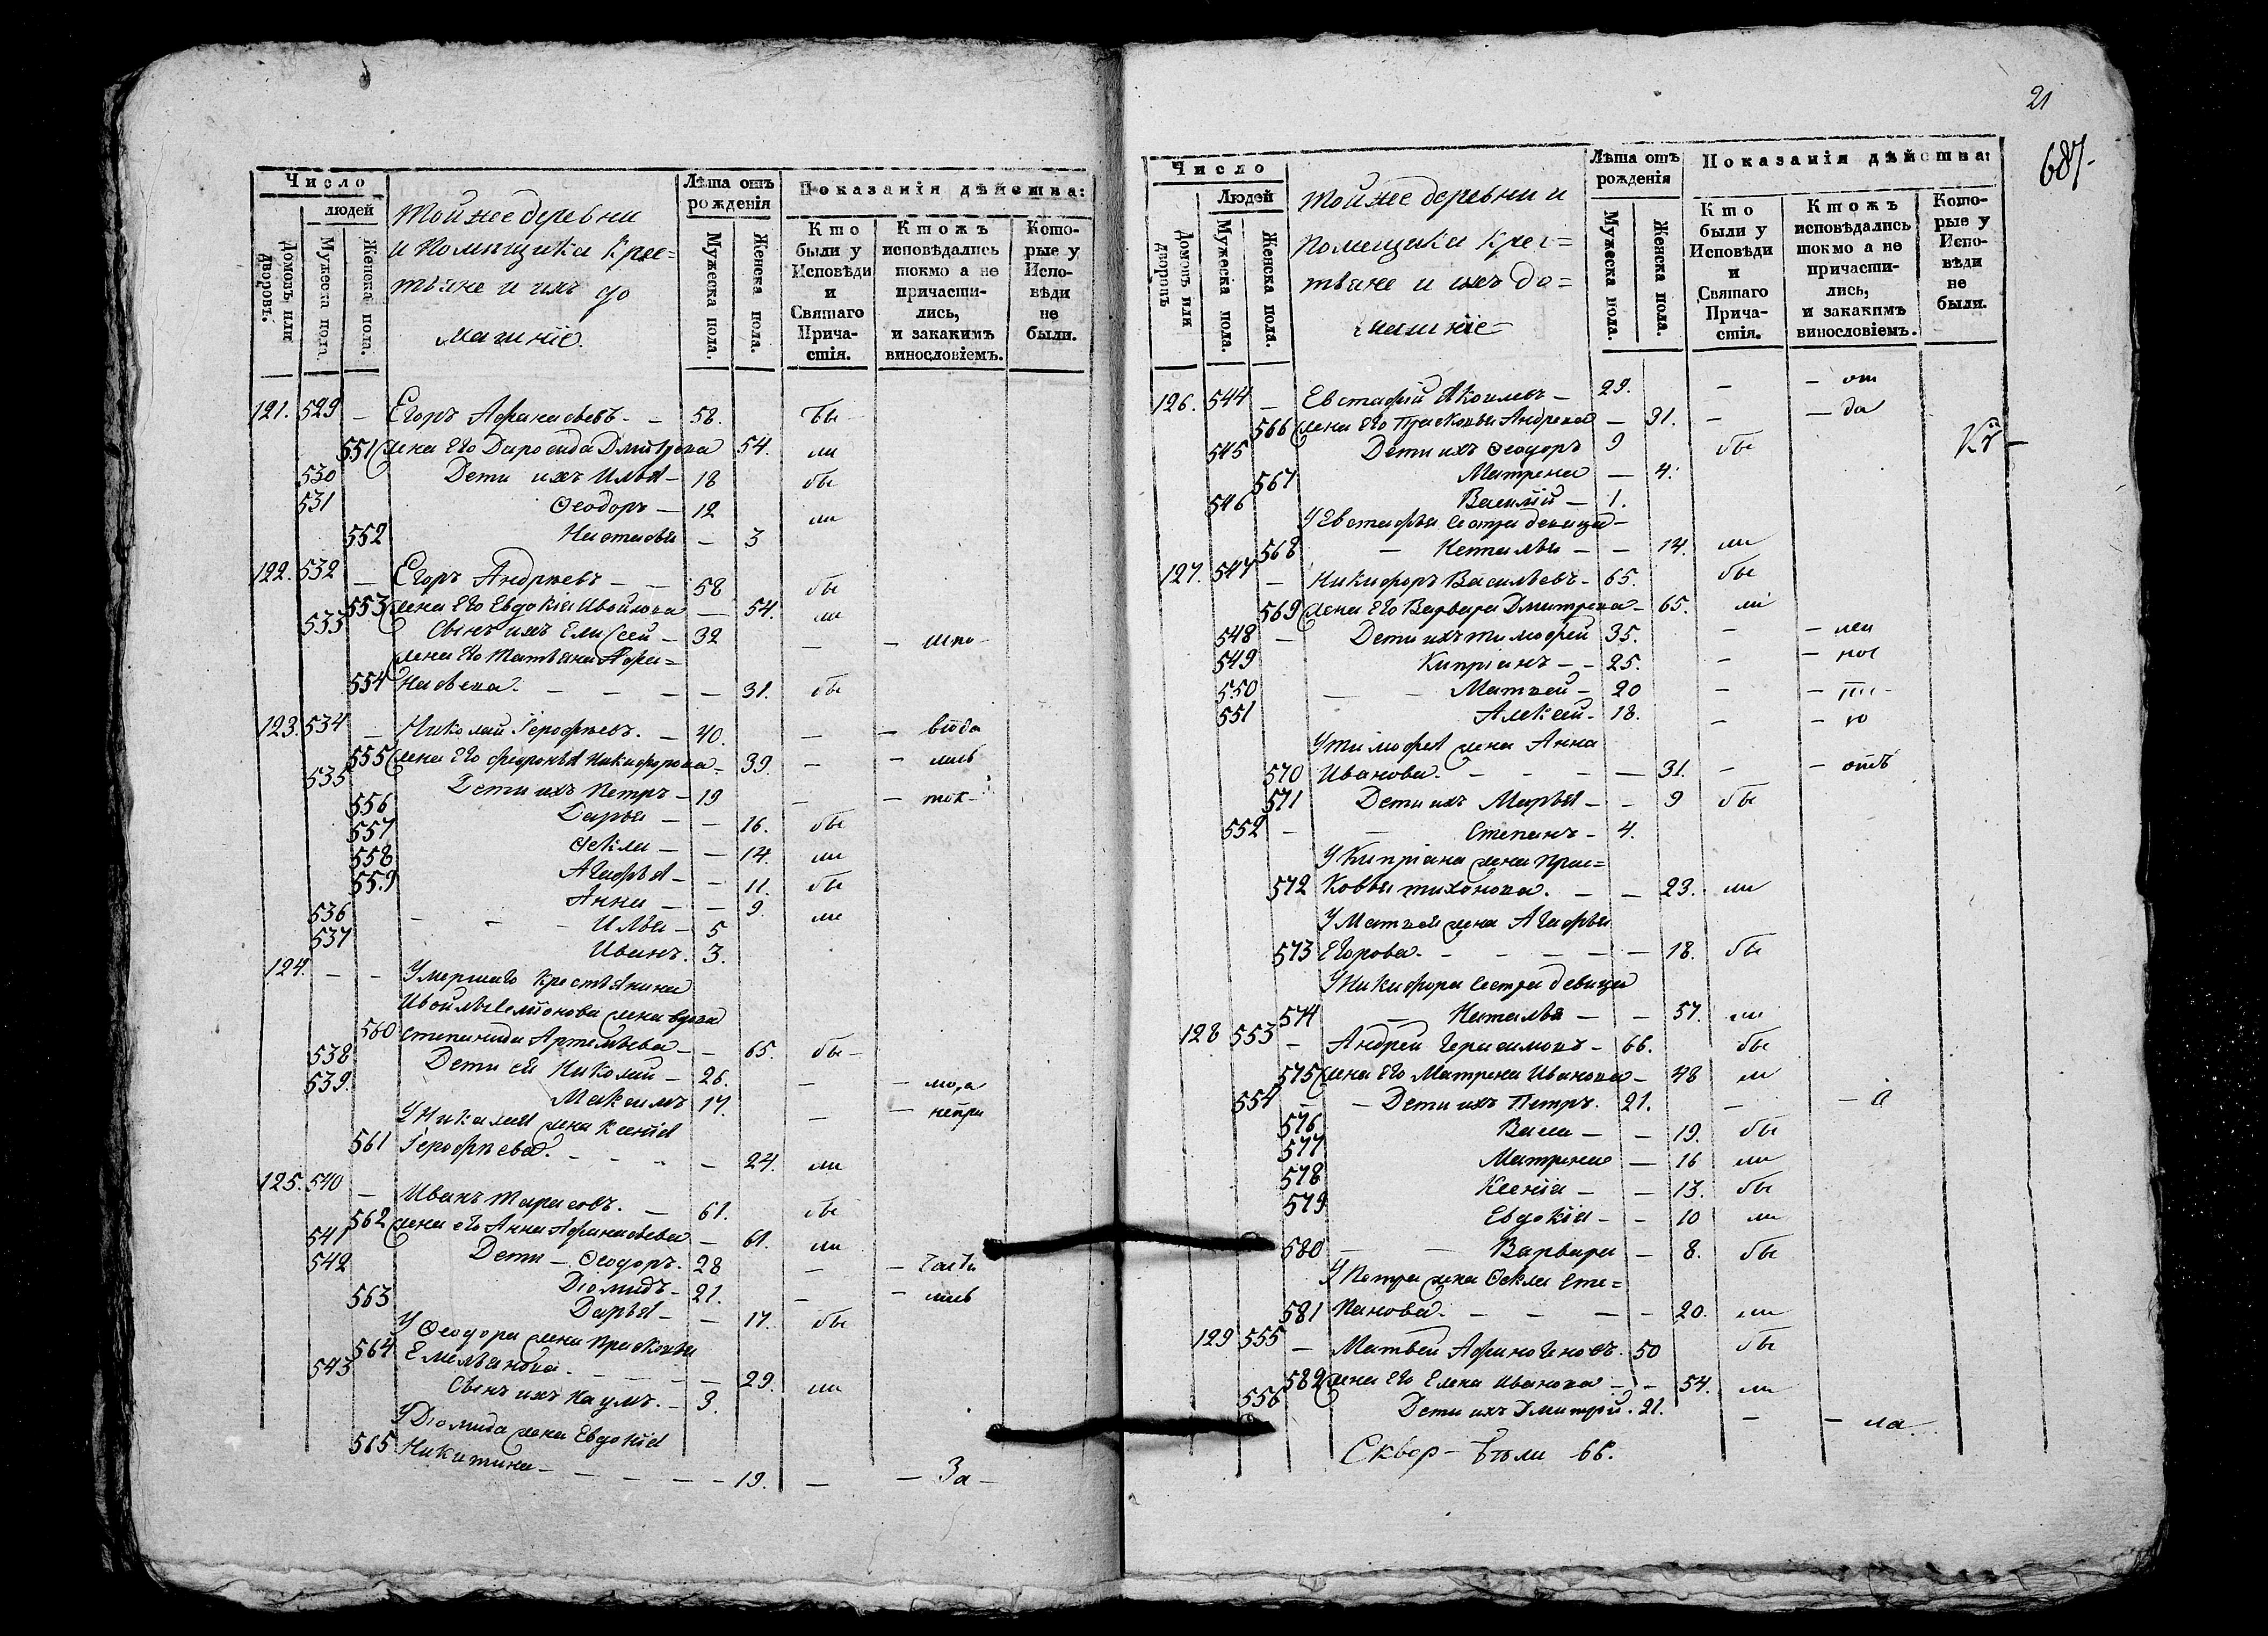 Число
людей
Домовъ или дворовъ.
Мужеска пола.
Женска пола.
Той же деревни
и помѣщика крес=
тьяне и ихъ до
машніе.
Лѣта отъ рожденія
Мужеска пола.
Женска пола.
Показанія дѣйства:
Кто были у Исповѣди и Святаго Причастія.
Ктожъ исповѣдались токмо а не причастились, и закакимъ винословіемъ.
Которые у Исповѣди не были.
121. 529 – Егоръ Афанасьевъ – – 58. бы
551 жена его Дмитрева 54. ли
530 Дети ихъ Илья – 18 бы
531 Ѳеодоръ – 12 ли
552 Настасья – 3
122. 532 – Егоръ Андреевъ – – 58 бы
553 жена его Евдокіа – 54. ли
533 Сынъ ихъ Елисей – 32 – –
жена его Татьяна Афа=
554 насьева. – – – – 31. бы
123. 534 – Николай Герофеевъ. – 40. – –
555 жена его Никифорова – 39. – –
535 Дети ихъ Петръ – 19 – – ток –
556 Дарья – – 16. бы
557 Ѳекла – – 14. ли
558 Агафья – – 11. бы
559 Анна – – 9. ли
536 – – – Илья – 5
537 Иванъ. 3.
124. – – Умершаго крестьянина
жена вдова
560 Степанида Артемьева – – 65. бы –
538 Дети ей Николай – 26. – –
539. Максимъ 17. – – непри
У Николая жена Ксенія
561 Герофеева. – – – – 24. ли
125. 540 – Иванъ Тарасовъ. – 61. бы
562 жена его Анна Афанасьева – 61. ли
541 Дети – Ѳеодоръ. 28 – – части
542 Діомидъ – 21. – – лись
563 Дарья – – 17. бы
У Ѳеодора жена Прасковья
564 Емельянова. – – – – 29. ли
543 Сынъ ихъ Наумъ. – 3.
У Діомида жена Евдокія
565 Никитина – – – – – – 19. – – За –
21
687.
Число
Людей
Домовъ или дворовъ
Мужеска пола.
Женска пола.
Той же деревни и
помещика крес=
тьяне и ихъ до=
машніе=
Лѣта отъ рожденія
Мужеска пола.
Женска пола.
Показанія дѣйства:
Кто были у Исповѣди и Святаго Причастія.
Ктожъ исповѣдались токмо а не причастились, и закакимъ винословіемъ.
Которые у Исповѣди не были.
126. 544 – Евстафій Яковлевъ – 29. – – от
566 жена его Прасковья Андреева – 31. – – да
545 Дети ихъ Ѳеодоръ 9 бы
567 Матрена – 4.
546 Василій – 1.
У Евстафья сестра девица –
568 – Наталья – – 14. ли
127. 547 – Никифоръ Васильевъ – 65. бы
569 жена его Варвара Дмитрева – 65. ли
548 – Дети ихъ Тимофей 35. – –
549 Кипріанъ – – 25. – –
550 – – Матвей – 20 – –
551 Алексей – 18. – – го
У Тимофея жена Анна
570 Иванова. – – – – 31. – – отъ
571 Дети ихъ Марья – – 9 бы
552 – – Степанъ – 4.
У Кипріана жена Прас=
572 ковья Тихонова. – – 23. ли
У Матвея жена Агафья
573 Егорова. – – – – – 18. бы
У Никифора сестра девица
574 – Наталья – – 57. ли
128 553 – Андрей Герасимовъ – 66. бы
575 жена его Матрена Иванова – 48 ли
554 – – Дети ихъ Петръ. 21. – –
576 Васса – – 19. бы
577 Матрена – 16 ли
578 Ксенія – – 13. бы
579 Евдокія – – 10 ли
580 – – Варвара – 8. бы
У Петра жена Ѳекла Сте=
581 панова. – – – – 20. ли
129 555 – Матвей Афиногеновъ. 50 бы
582 жена его Елена Иванова – – 54. ли
556 Дети ихъ Дмитрій. 21. – – ла